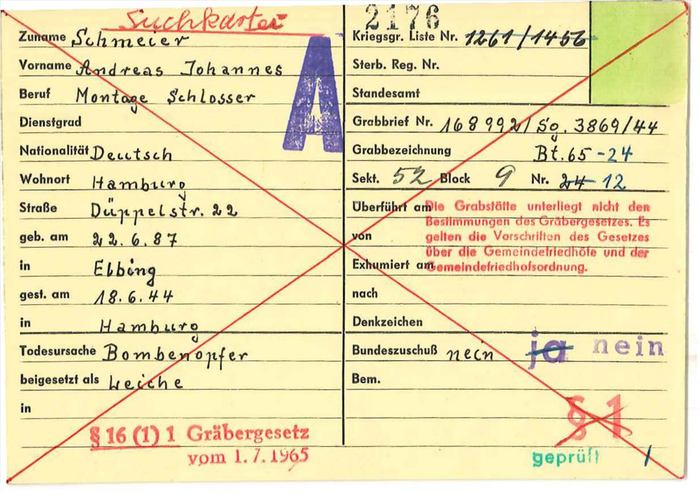 Suchkartei
Zuname Schmeier
Vorname Andreas Johannes
Beruf Montage Schlosser
Dienstgrad
Nationalität Deutsch
Wohnort Hamburg
Straße Düppelstr. 22
geb. am 22.6.87
in Elbing
gest. am 18.6.44
in Hamburg
Todesursache Bombenopfer
beigesetzt als Leiche
in
§ 16 (1) 1 Gräbergesetz
vom 1.7.1965
A
2176
Kriegsgr. Liste Nr. 1261/1456
Sterb. Reg. Nr.
Standesamt
Grabbrief Nr. 168992/Sg. 3869/44
Grabbezeichnung Bt. 65-24
Sekt. 52 Block 9 Nr. 24 12
Überführt am
von
Exhumiert am
nach
Die Grabstätte unterliegt nicht den
Bestimmungen des Gräbergesetzes. Es
gelten die Vorschriften des Gesetzes
über die Gemeindefriedhöfe und der
Gemeindefriedhofsordnung.
Denkzeichen
Bundeszuschuß nein ja nein
Bem.
§ 1
geprüft